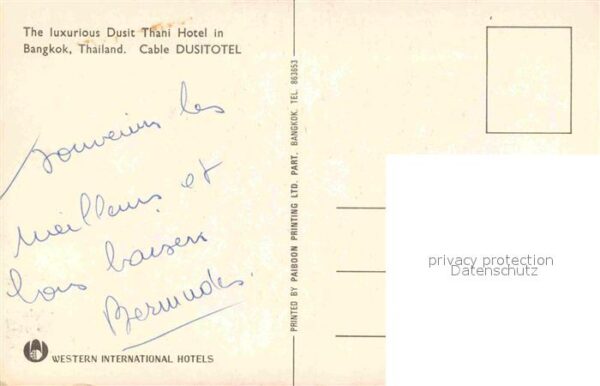 The luxurious Dusit Thani Hotel in
Bangkok, Thailand. Cable DUSITOTEL
souvenirs les
meilleurs et
bons baisers
Bermudes.
WESTERN INTERNATIONAL HOTELS
PRINTED BY PAIBOON PRINTING LTD. PART. BANGKOK. TEL. 863653
privacy protection
Datenschutz